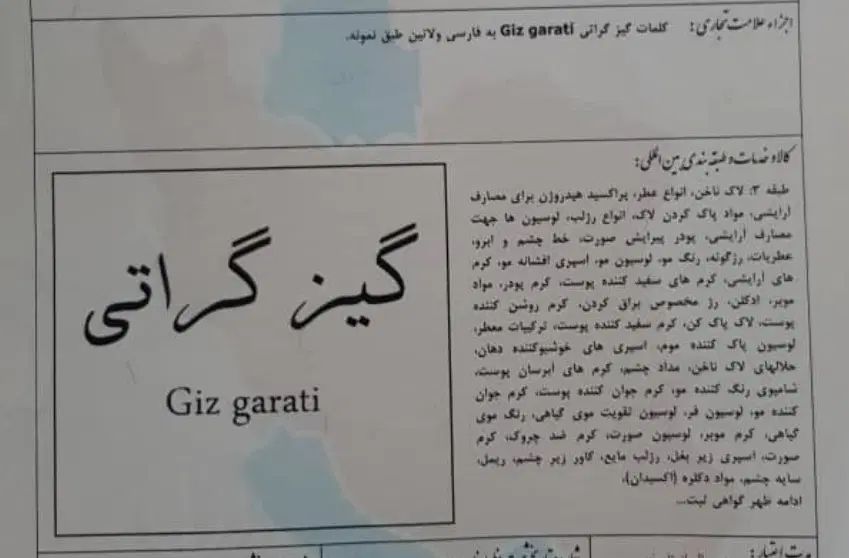 اجزاء علامت تجاری: کلمات گیز گراتی Giz garati به فارسی ولاتین طبق نمونه.
کالا و خدمات و طبقه بندی بین المللی:
طبقه ۳: لاک ناخن، انواع عطر، پراکسید هیدروژن برای مصارف
آرایشی، مواد پاک کردن لاک، انواع رژلب، لوسیون ها جهت
مصارف آرایشی، پودر پیرایش صورت، خط چشم و ابرو،
عطریات، رژگونه، رنگ مو، لوسیون مو، اسپری افشانه مو، کرم
های آرایشی، کرم های سفید کننده پوست، کرم پودر، مواد
موبر، ادکلن، رژ مخصوص براق کردن، کرم روشن کننده
پوست، لاک پاک کن، کرم سفید کننده پوست، ترکیبات معطر،
لوسیون پاک کننده موم، اسپری های خوشبوکننده دهان،
حلالهای لاک ناخن، مداد چشم، کرم های آبرسان پوست،
شامپوی رنگ کننده مو، کرم جوان کننده پوست، کرم جوان
کننده مو، لوسیون فر، لوسیون تقویت موی گیاهی، رنگ موی
گیاهی، کرم موبر، لوسیون صورت، کرم ضد چروک، کرم
صورت، اسپری زیر بغل، رژلب مایع، کاور زیر چشم، ریمل،
سایه چشم، مواد دکلره (اکسیدان)،
ادامه ظهر گواهی ثبت...
گیز گراتی
Giz garati
مدت اعتبار: